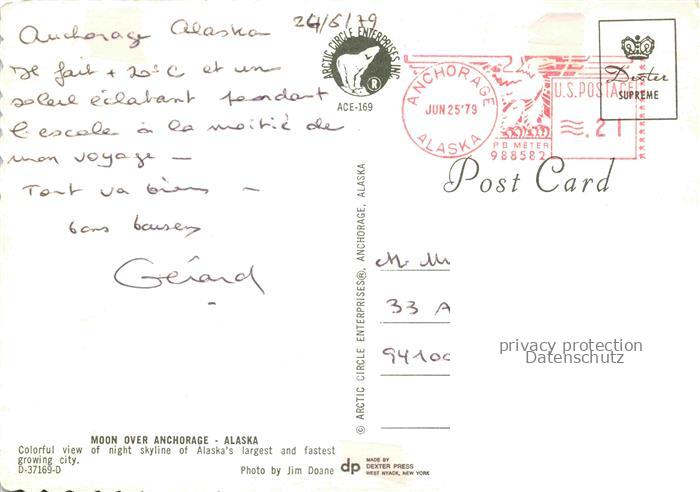 Anchorage Alaska
24/6/79
Il fait + 20°C et un
soleil éclatant pendant
l'escale à la moitié de
mon voyage —
Tout va bien —
bons baisers
Gérard
ARCTIC CIRCLE ENTERPRISES INC.
®
ACE-169
ANCHORAGE
JUN 25 '79
ALASKA
P B METER
988582
U.S. POSTAGE
.21
Dexter
SUPREME
Post Card
© ARCTIC CIRCLE ENTERPRISES®, ANCHORAGE, ALASKA
M. M
33 A
94100
privacy protection
Datenschutz
MOON OVER ANCHORAGE - ALASKA
Colorful view of night skyline of Alaska's largest and fastest
growing city.
D-37169-D
Photo by Jim Doane
dp
MADE BY
DEXTER PRESS
WEST NYACK, NEW YORK